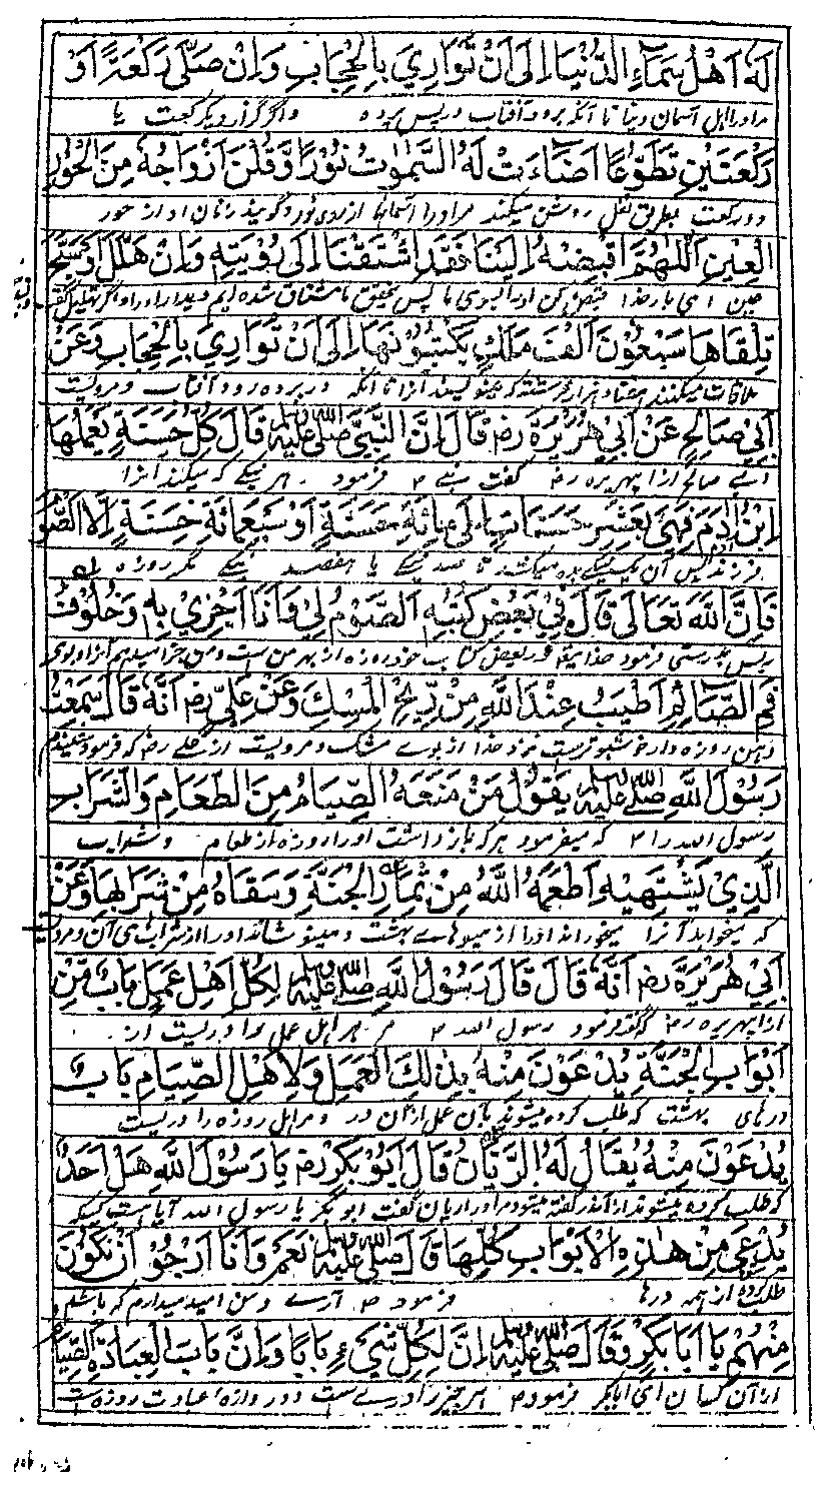 لَهُ اَهْلُ سَمَاءِ الدُّنْيَا اِلَى اَنْ تَوَارِيَ بِالْحِجَابِ وَاِنْ صَلَّى رَكْعَةً اَوْ
مراورا اهل آسمان دنیا تا آنکه برود آفتاب در پس پرده واگر گزارد یکرکعت یا
رَكْعَتَيْنِ تَطَوُّعًا اَضَاءَتْ لَهُ السَّمٰوٰتُ نُوْرًا وَّقُلْنَ اَزْوَاجُهُ مِنَ الْحُوْرِ
دو رکعت بطریق نفل روشن میکند مراورا آسمانها از روی نور و گویند زنان او از حور
الْعِيْنِ اَللّٰهُمَّ اقْبِضْهُ اِلَيْنَا فَقَدِ اشْتَقْنَا اِلٰى رُؤْيَتِهِ وَاِنْ هَلَّلَ اَوْ سَبَّحَ
عین ای بار خدا قبض کن اورا بسوی ما پس تحقیق ما مشتاق شده ایم دیدار او را واگر تهلیل گفت
تِلْقَاهَا سَبْعُوْنَ اَلْفَ مَلَكٍ يَكْتُبُوْنَهَا اِلَى اَنْ تَوَارِيَ بِالْحِجَابِ وَعَنْ
ملاقات میکنند هفتاد هزار فرشته که مینویسند آنرا تا آنکه در پرده رود آفتاب و مرویست
اَبِيْ صَالِحٍ عَنْ اَبِيْ هُرَيْرَةَ رض قَالَ اِنَّ النَّبِيَّ صَلَّى اللّٰهُ عَلَيْهِ وَسَلَّمَ قَالَ كُلُّ حَسَنَةٍ يَعْمَلُهَا
ابی صالح از ابی هریره رض گفت نبی م فرمود هر نیکی که میکند آنرا
ابْنُ اٰدَمَ فَهِيَ بِعَشْرِ حَسَنَاتٍ اِلٰى مِائَةِ حَسَنَةٍ اَوْ سَبْعِمِائَةِ حَسَنَةٍ اِلَّا الصَّوْمَ
فرزند پس آن یک نیکی بده میکشد تا صد نیکی یا هفتصد نیکی مگر روزه
فَاِنَّ اللّٰهَ تَعَالٰى قَالَ فِيْ بَعْضِ كُتُبِهِ اَلصَّوْمُ لِيْ وَاَنَا اَجْزِيْ بِهِ وَخُلُوْفُ
پس بدرستی فرمود خدایتعالی در بعض کتاب خود روزه از بهر من است و من جزا میدهم آنرا و بوی
فَمِ الصَّائِمِ اَطْيَبُ عِنْدَ اللّٰهِ مِنْ رِّيْحِ الْمِسْكِ وَعَنْ عَلِيٍّ رض اَنَّهُ قَالَ سَمِعْتُ
دهن روزه دار خوشبوترست نزد خدا از بوے مشک و مرویست از علے رض که فرمود شنیدم
رَسُوْلَ اللّٰهِ صَلَّى اللّٰهُ عَلَيْهِ وَسَلَّمَ يَقُوْلُ مَنْ مَنَعَهُ الصِّيَامُ مِنَ الطَّعَامِ وَالشَّرَابِ
رسول الله را م که میفرمود هر که باز داشت اورا روزه از طعام و شراب
الَّذِيْ يَشْتَهِيْهِ اَطْعَمَهُ اللّٰهُ مِنْ ثِمَارِ الْجَنَّةِ وَسَقَاهُ مِنْ شَرَابِهَا وَعَنْ
که میخواهد آنرا میخوراند اورا از میوهاے بهشت و مینوشاند اورا از شرابهای آن و مرویست
اَبِيْ هُرَيْرَةَ رض اَنَّهُ قَالَ قَالَ رَسُوْلُ اللّٰهِ صَلَّى اللّٰهُ عَلَيْهِ وَسَلَّمَ لِكُلِّ اَهْلِ عَمَلٍ بَابٌ مِّنْ
از ابی هریره رض که گفت فرمود رسول الله م مر هر اهل عمل را دریست از
اَبْوَابِ الْجَنَّةِ يُدْعَوْنَ مِنْهُ بِذٰلِكَ الْعَمَلِ وَلِاَهْلِ الصِّيَامِ بَابٌ
درهای بهشت که طلب کرده میشوند بآن عمل از آن در و مر اهل روزه را دریست
يُدْعَوْنَ مِنْهُ يُقَالُ لَهُ الرَّيَّانُ قَالَ اَبُوْ بَكْرٍ رض يَا رَسُوْلَ اللّٰهِ هَلْ اَحَدٌ
که طلب کرده میشوند از آن در گفته میشود مر اورا ریان گفت ابو بکر یا رسول الله آیا هست کسیکه
يُدْعٰى مِنْ هٰذِهِ الْاَبْوَابِ كُلِّهَا قَالَ صَلَّى اللّٰهُ عَلَيْهِ وَسَلَّمَ نَعَمْ وَاَنَا اَرْجُوْ اَنْ تَكُوْنَ
طلب کرده از همه درها فرمود م آرے و من امید میدارم که باشی
مِنْهُمْ يَا اَبَا بَكْرٍ وَقَالَ صَلَّى اللّٰهُ عَلَيْهِ وَسَلَّمَ اِنَّ لِكُلِّ شَيْءٍ بَابًا وَاِنَّ بَابَ الْعِبَادَةِ الصِّيَامُ
از آن کسان ای ابابکر فرمود م هر چیز را درے ست و دروازه عبادت روزه است